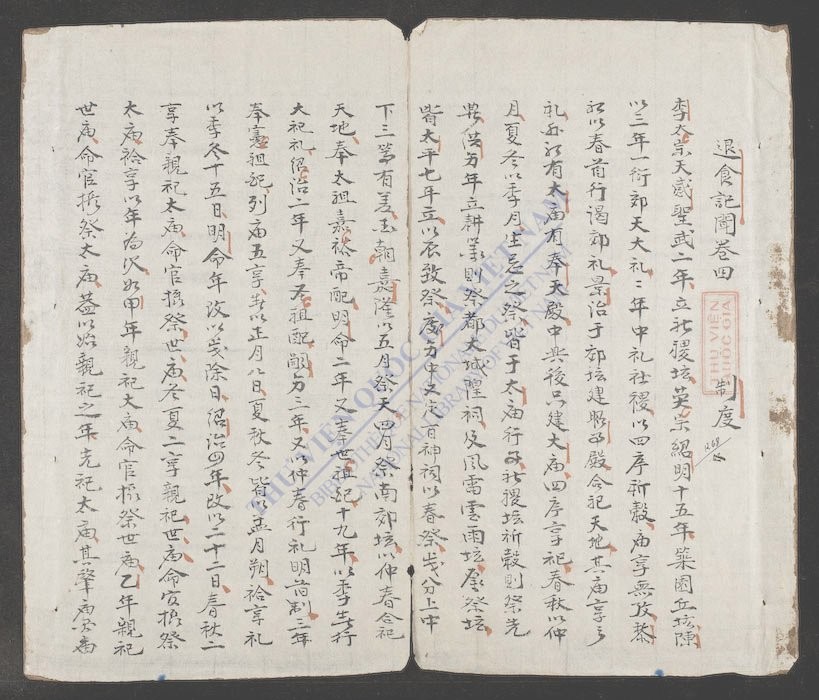 退食記聞卷四 制度
李太宗天感聖武二年立社稷坛英宗紹明十五年築圜丘坛陳
以三年一行郊天大礼二年中礼社稷以四序祈穀庙享無攷黎
初以春首行謁郊礼景治于郊坛建昭事殿合祀天地其庙享之
礼如初有太庙有奉天殿中兴後只建太庙四序享祀春秋以仲
月夏冬以季月生忌之祭皆于太庙行如社稷坛祈穀則祭先
農洪年立耕籍則祭都大城隍祠及風雷雲雨坛祭坛
皆太平七年立以辰致祭中又定百神祠以春祭分上中
下三等有差
國朝嘉隆以五月祭天四月祭南郊坛以仲春合祀
天地奉太祖嘉裕帝配明命二年又奉世祖配十九年以季春行
大祀礼紹治二年又奉圣祖配嗣三年又以仲春行礼明前制三年
奉憲祖配列庙五享春以正月八日夏秋冬皆以孟月朔祫享礼
以季冬十五日明命年改以歲除日紹治四年改以二十二日春秋二
享奉親祀太庙命官攝祭世庙冬夏二享親祀世庙命官攝祭
太庙祫享以年為次如甲年親祀太庙命官攝祭世庙乙年親祀
世庙命官攝祭太庙益以始親祀之年先祀太庙其肇庙
THƯ VIỆN
QUỐC GIA
THƯ VIỆN QUỐC GIA VIỆT NAM
BIBLIOTHÈQUE NATIONALE DU VIETNAM
NATIONAL LIBRARY OF VIETNAM